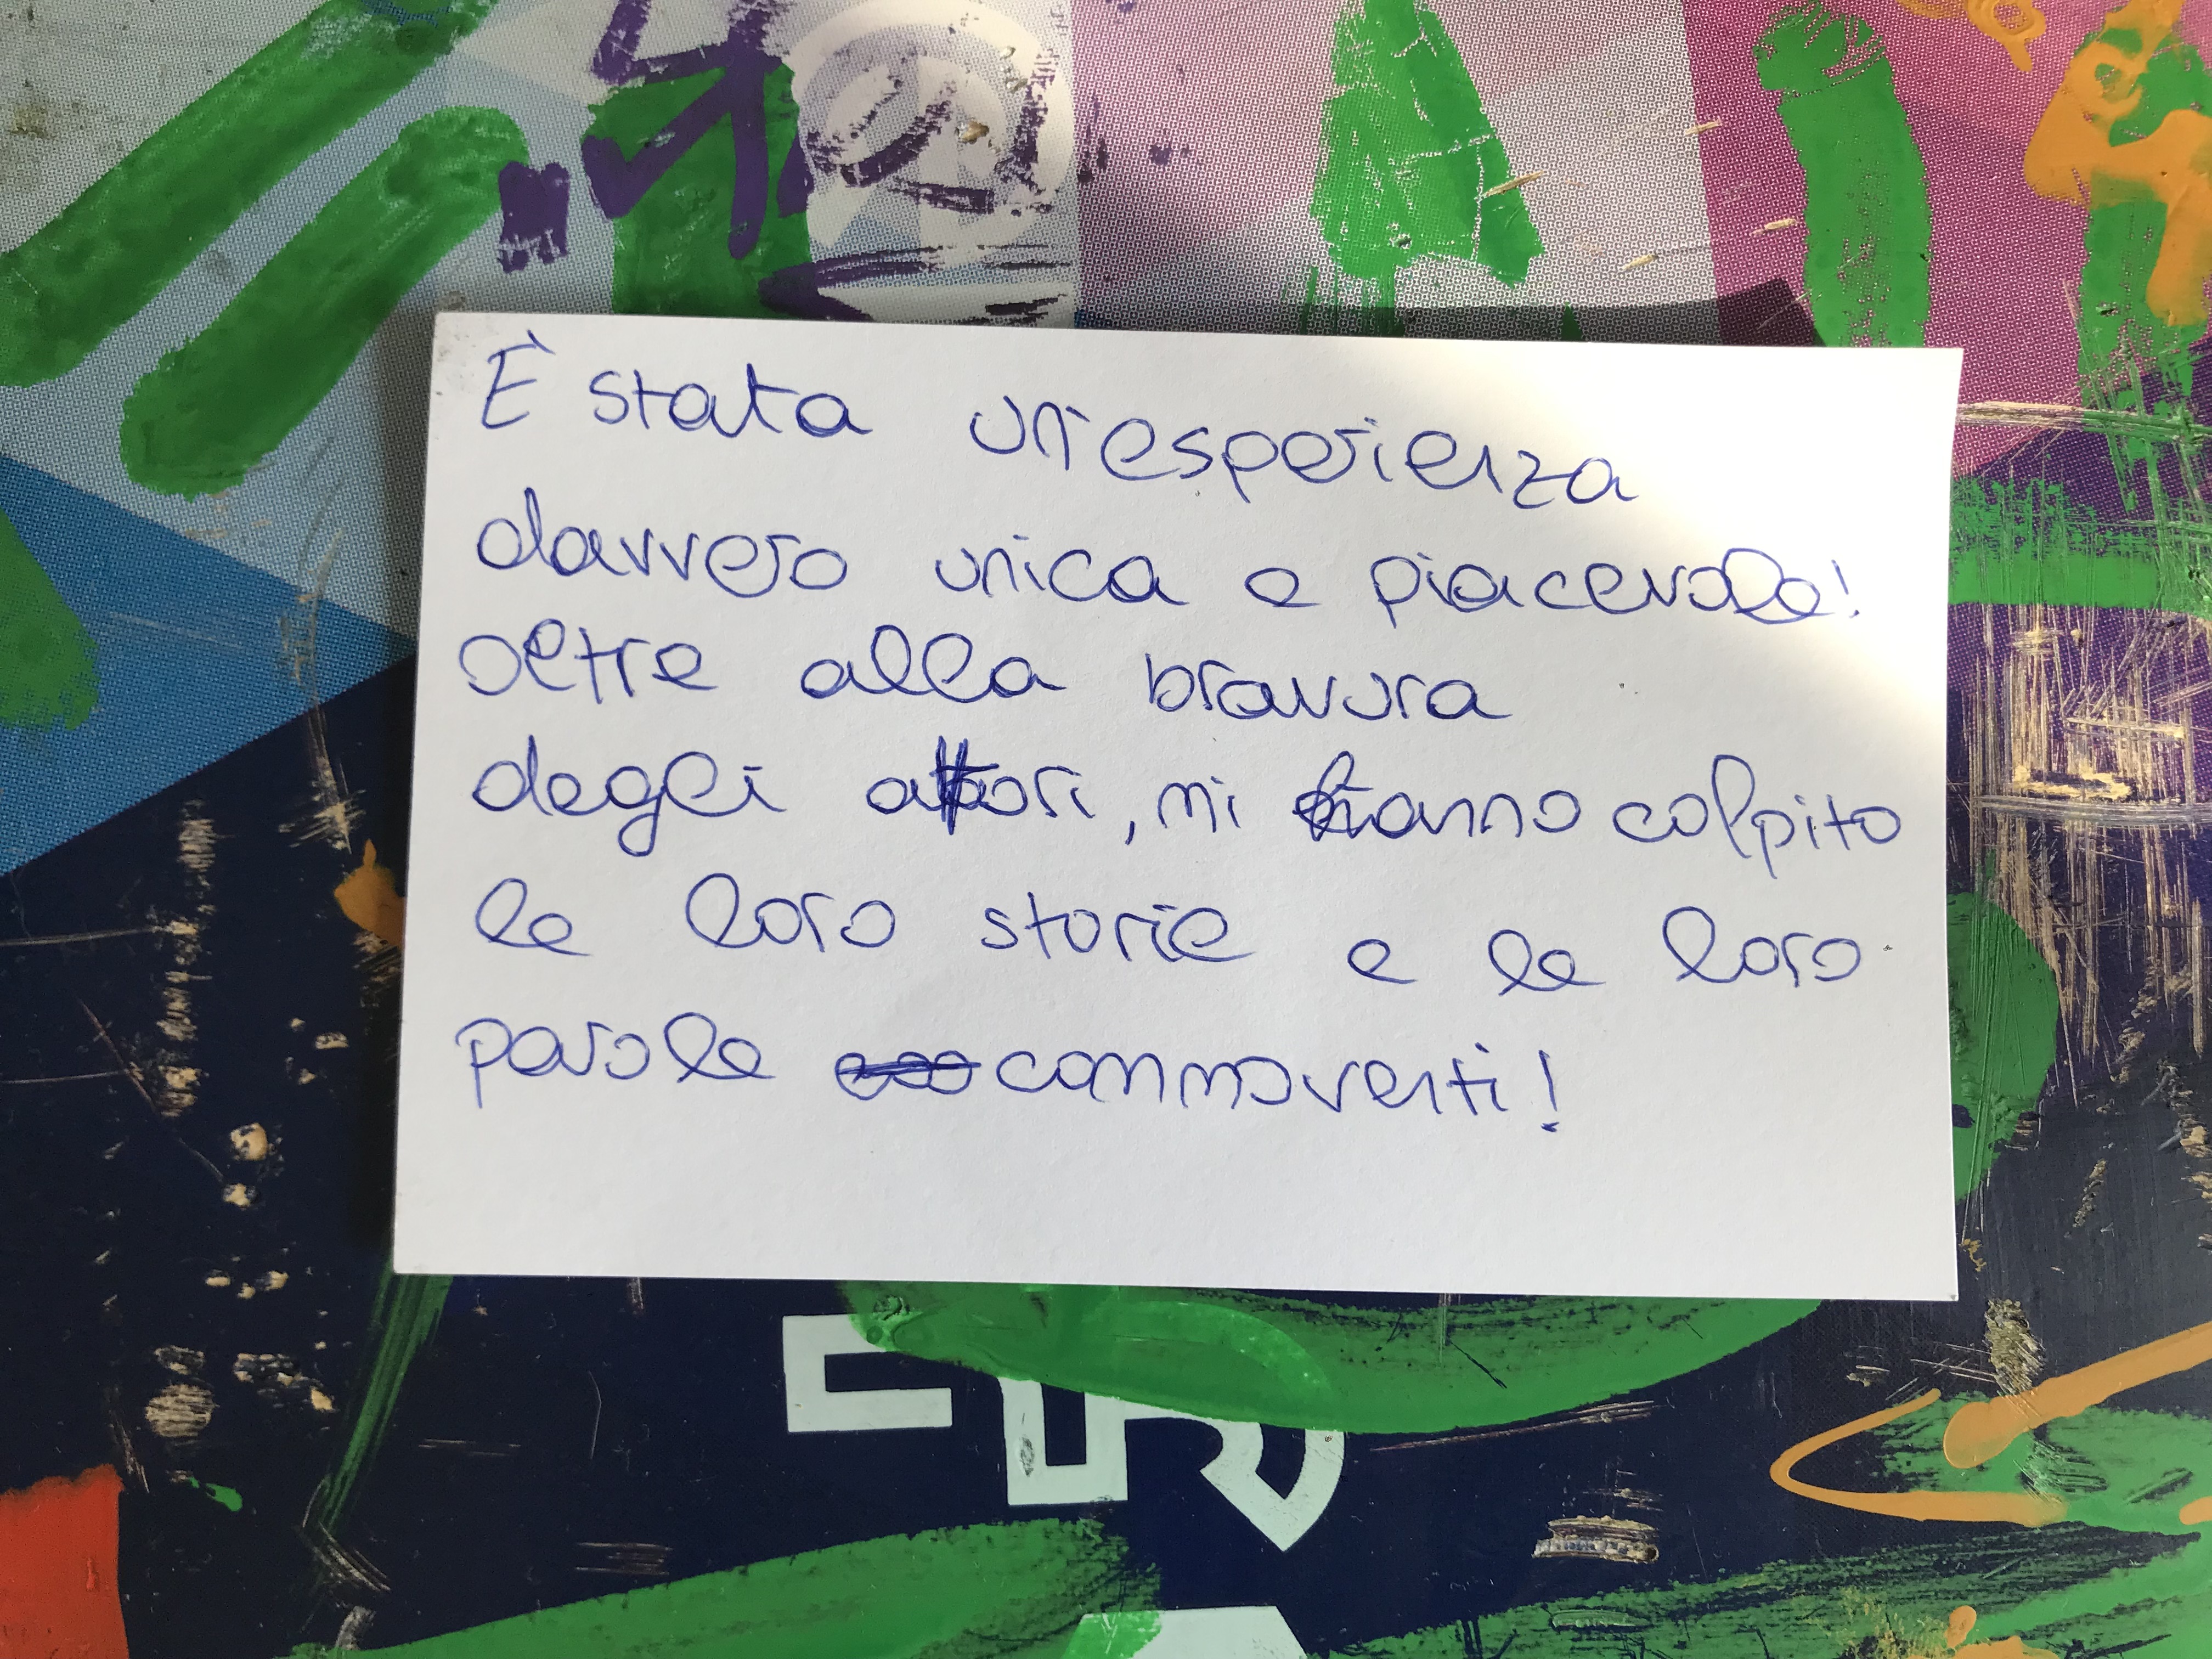 È stata un'esperienza
davvero unica e piacevole!
oltre alla bravura
degli attori, mi hanno colpito
le loro storie e le loro
parole commoventi!